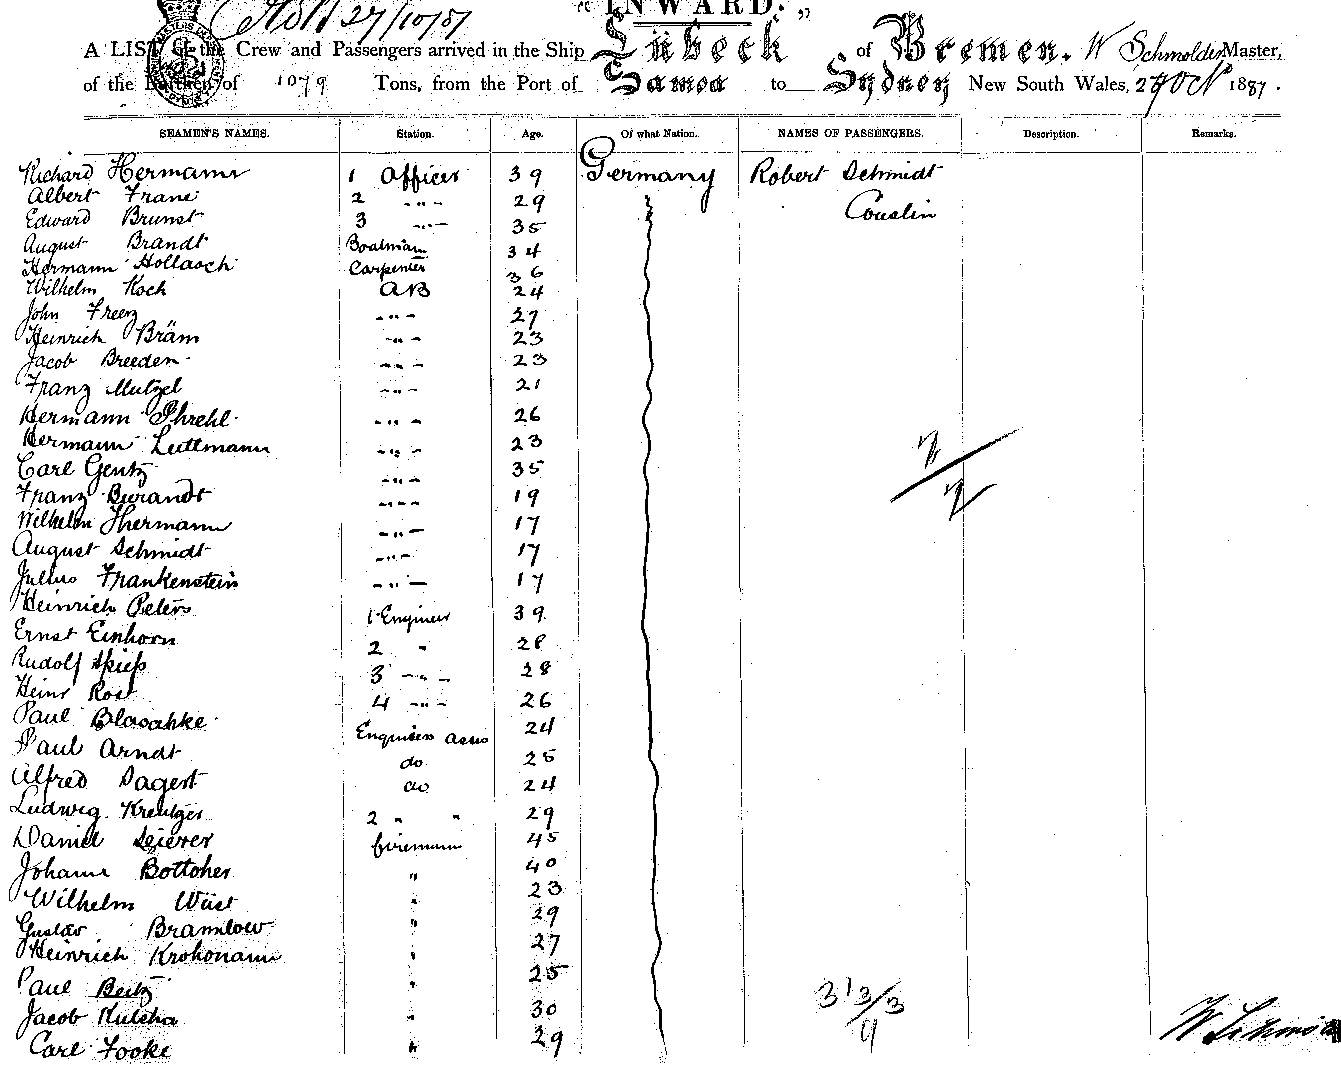 27/10/87
"INWARD."
A LIST of the Crew and Passengers arrived in the Ship Lübeck of Bremen. W Schmolder Master,
of the Burthen of 1079 Tons, from the Port of Samoa to Sydney New South Wales, 27 Oct 1887.
SEAMEN'S NAMES. Station. Age. Of what Nation. NAMES OF PASSENGERS. Description. Remarks.
Richard Hermann 1 Officer 39 Germany Robert Schmidt
Albert Franc 2 " 29 Couslin
Edward Brunst 3 " 35
August Brandt Boatman 34
Hermann Hollasch Carpenter 36
Wilhelm Koch AB 24
John Freez " 27
Heinrich Bräm " 23
Jacob Breeden " 23
Franz Mutzel " 21
Hermann Phrehl " 26
Hermann Luttmann " 23
Carl Gentz " 35
Franz Burandt " 19
Wilhelm Hhermann " 17
August Schmidt " 17
Julius Frankenstein " 17
Heinrich Peters 1 Engineer 39
Ernst Einhorn 2 " 28
Rudolf Spieß 3 " 28
Heinr Rost 4 " 26
Paul Blaschke Engineers assis 24
Paul Arndt do 25
Alfred Dagert do 24
Ludwig Kreutzer 2 " " 29
Daniel Seierer firemann 45
Johann Bottcher " 40
Wilhelm Wüst " 23
Gustav Bramlow " 29
Heinrich Krohonann " 27
Paul Beitz " 25
Jacob Kutcha " 30
Carl Fooke " 29
313/3
9